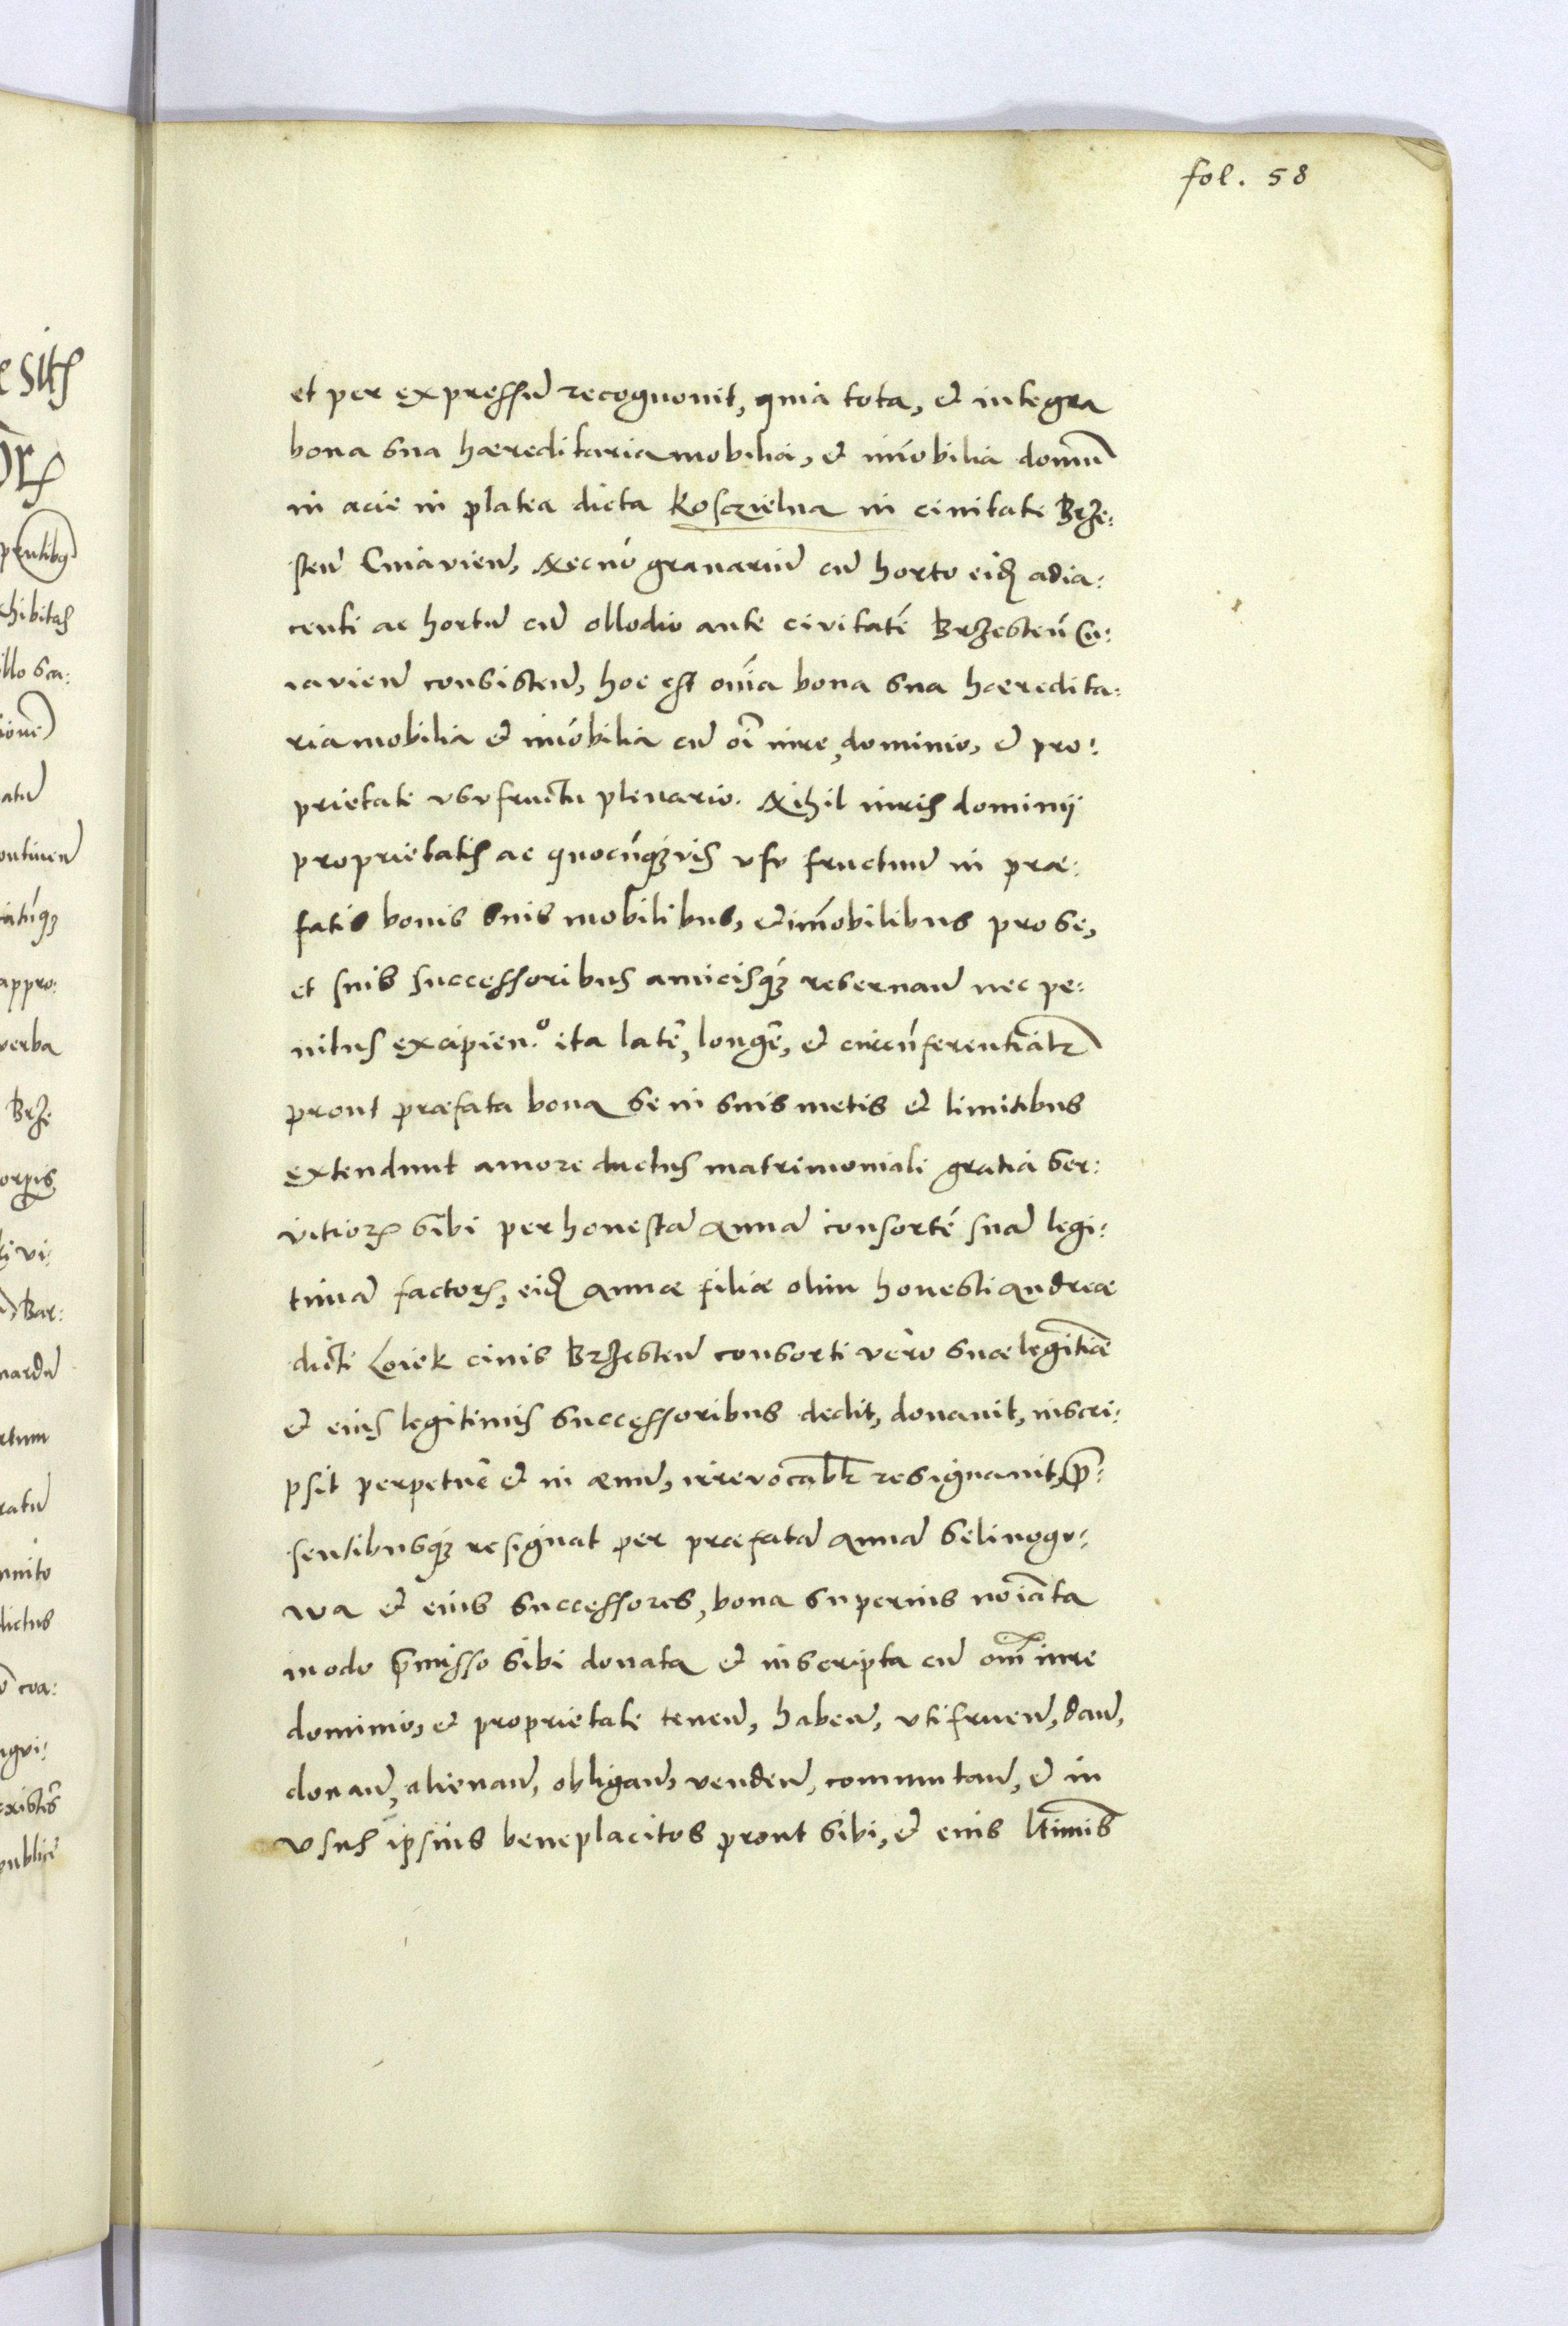 fol. 58
et per expressũ recognouit, quia tota, et integra
bona sua haereditaria mobilia, et im̃obilia domũ
in acie in platea dicta Kosczielna in ciuitate Brze:
steñ Cuiavieñ, Necnõ granariũ cũ horto eid adia:
centi ac hortũ cũ ollodio ante civitatẽ Brzesteñ Cu:
iavieñ consisteñ, hoc est oĩa bona sua haeredita:
ria mobilia et im̃obilia cũ oĩ iure, dominio, et pro:
prietate vsvfructu plenario. Nihil iuris dominij
proprietatis ac quocũq3 vis vsv fructuũ in prae:
fatis bonis suis mobilibus, et im̃obilibus pro se,
et suis successoribus amicisq3 reseruañ nec pe:
nitus excipieñ.º ita latẽ, longẽ, et circũferentialr
prout praefata bona se in suis metis et limitibus
extendunt amore ductus matrimoniali gratia ser:
vitiorꝝ sibi per honestã Annã consortẽ suã legi:
timã factorꝝ, eid Annae filiae olim honesti Andreae
dicti Loiek ciuis Brzesteñ consorti vero suae legitiae
et eius legitimis successoribus dedit, donauit, inscri:
psit perpetuẽ et in aeuũ, irrevocablr resignauit, p̃:
sentibusq3 resignat per praefatã Annã Selinogo:
wa et eius successores, bona superius noiata
modo p̃misso sibi donata et inscripta cũ om̃i iure
dominio, et proprietate teneñ, habeñ, vtifrueñ, dañ,
donañ, alienañ, obligañ, vendeñ, commutañ, et in
vsus ipsius beneplacitos prout sibi, et eius ltimis